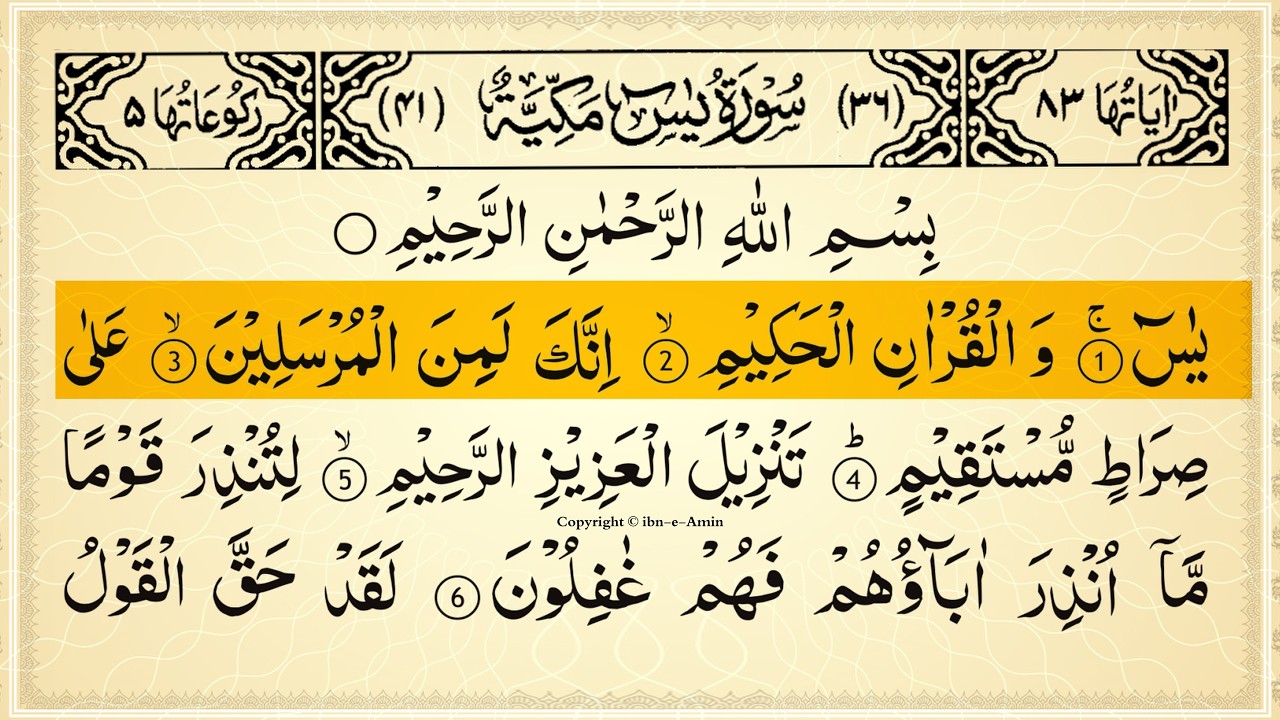 اٰیَاتُهَا ۸۳ (۳۶) سُوْرَةُ یٰسٓ مَكِّیَّةٌ (۴۱) رُكُوْعَاتُهَا ۵
بِسْمِ اللّٰهِ الرَّحْمٰنِ الرَّحِیْمِ ○
یٰسٓ ۚ ① وَ الْقُرْاٰنِ الْحَكِیْمِ ۙ ② اِنَّكَ لَمِنَ الْمُرْسَلِیْنَ ۙ ③ عَلٰی
صِرَاطٍ مُّسْتَقِیْمٍ ؕ ④ تَنْزِیْلَ الْعَزِیْزِ الرَّحِیْمِ ۙ ⑤ لِتُنْذِرَ قَوْمًا
Copyright © ibn-e-Amin
مَّاۤ اُنْذِرَ اٰبَآؤُهُمْ فَهُمْ غٰفِلُوْنَ ⑥ لَقَدْ حَقَّ الْقَوْلُ